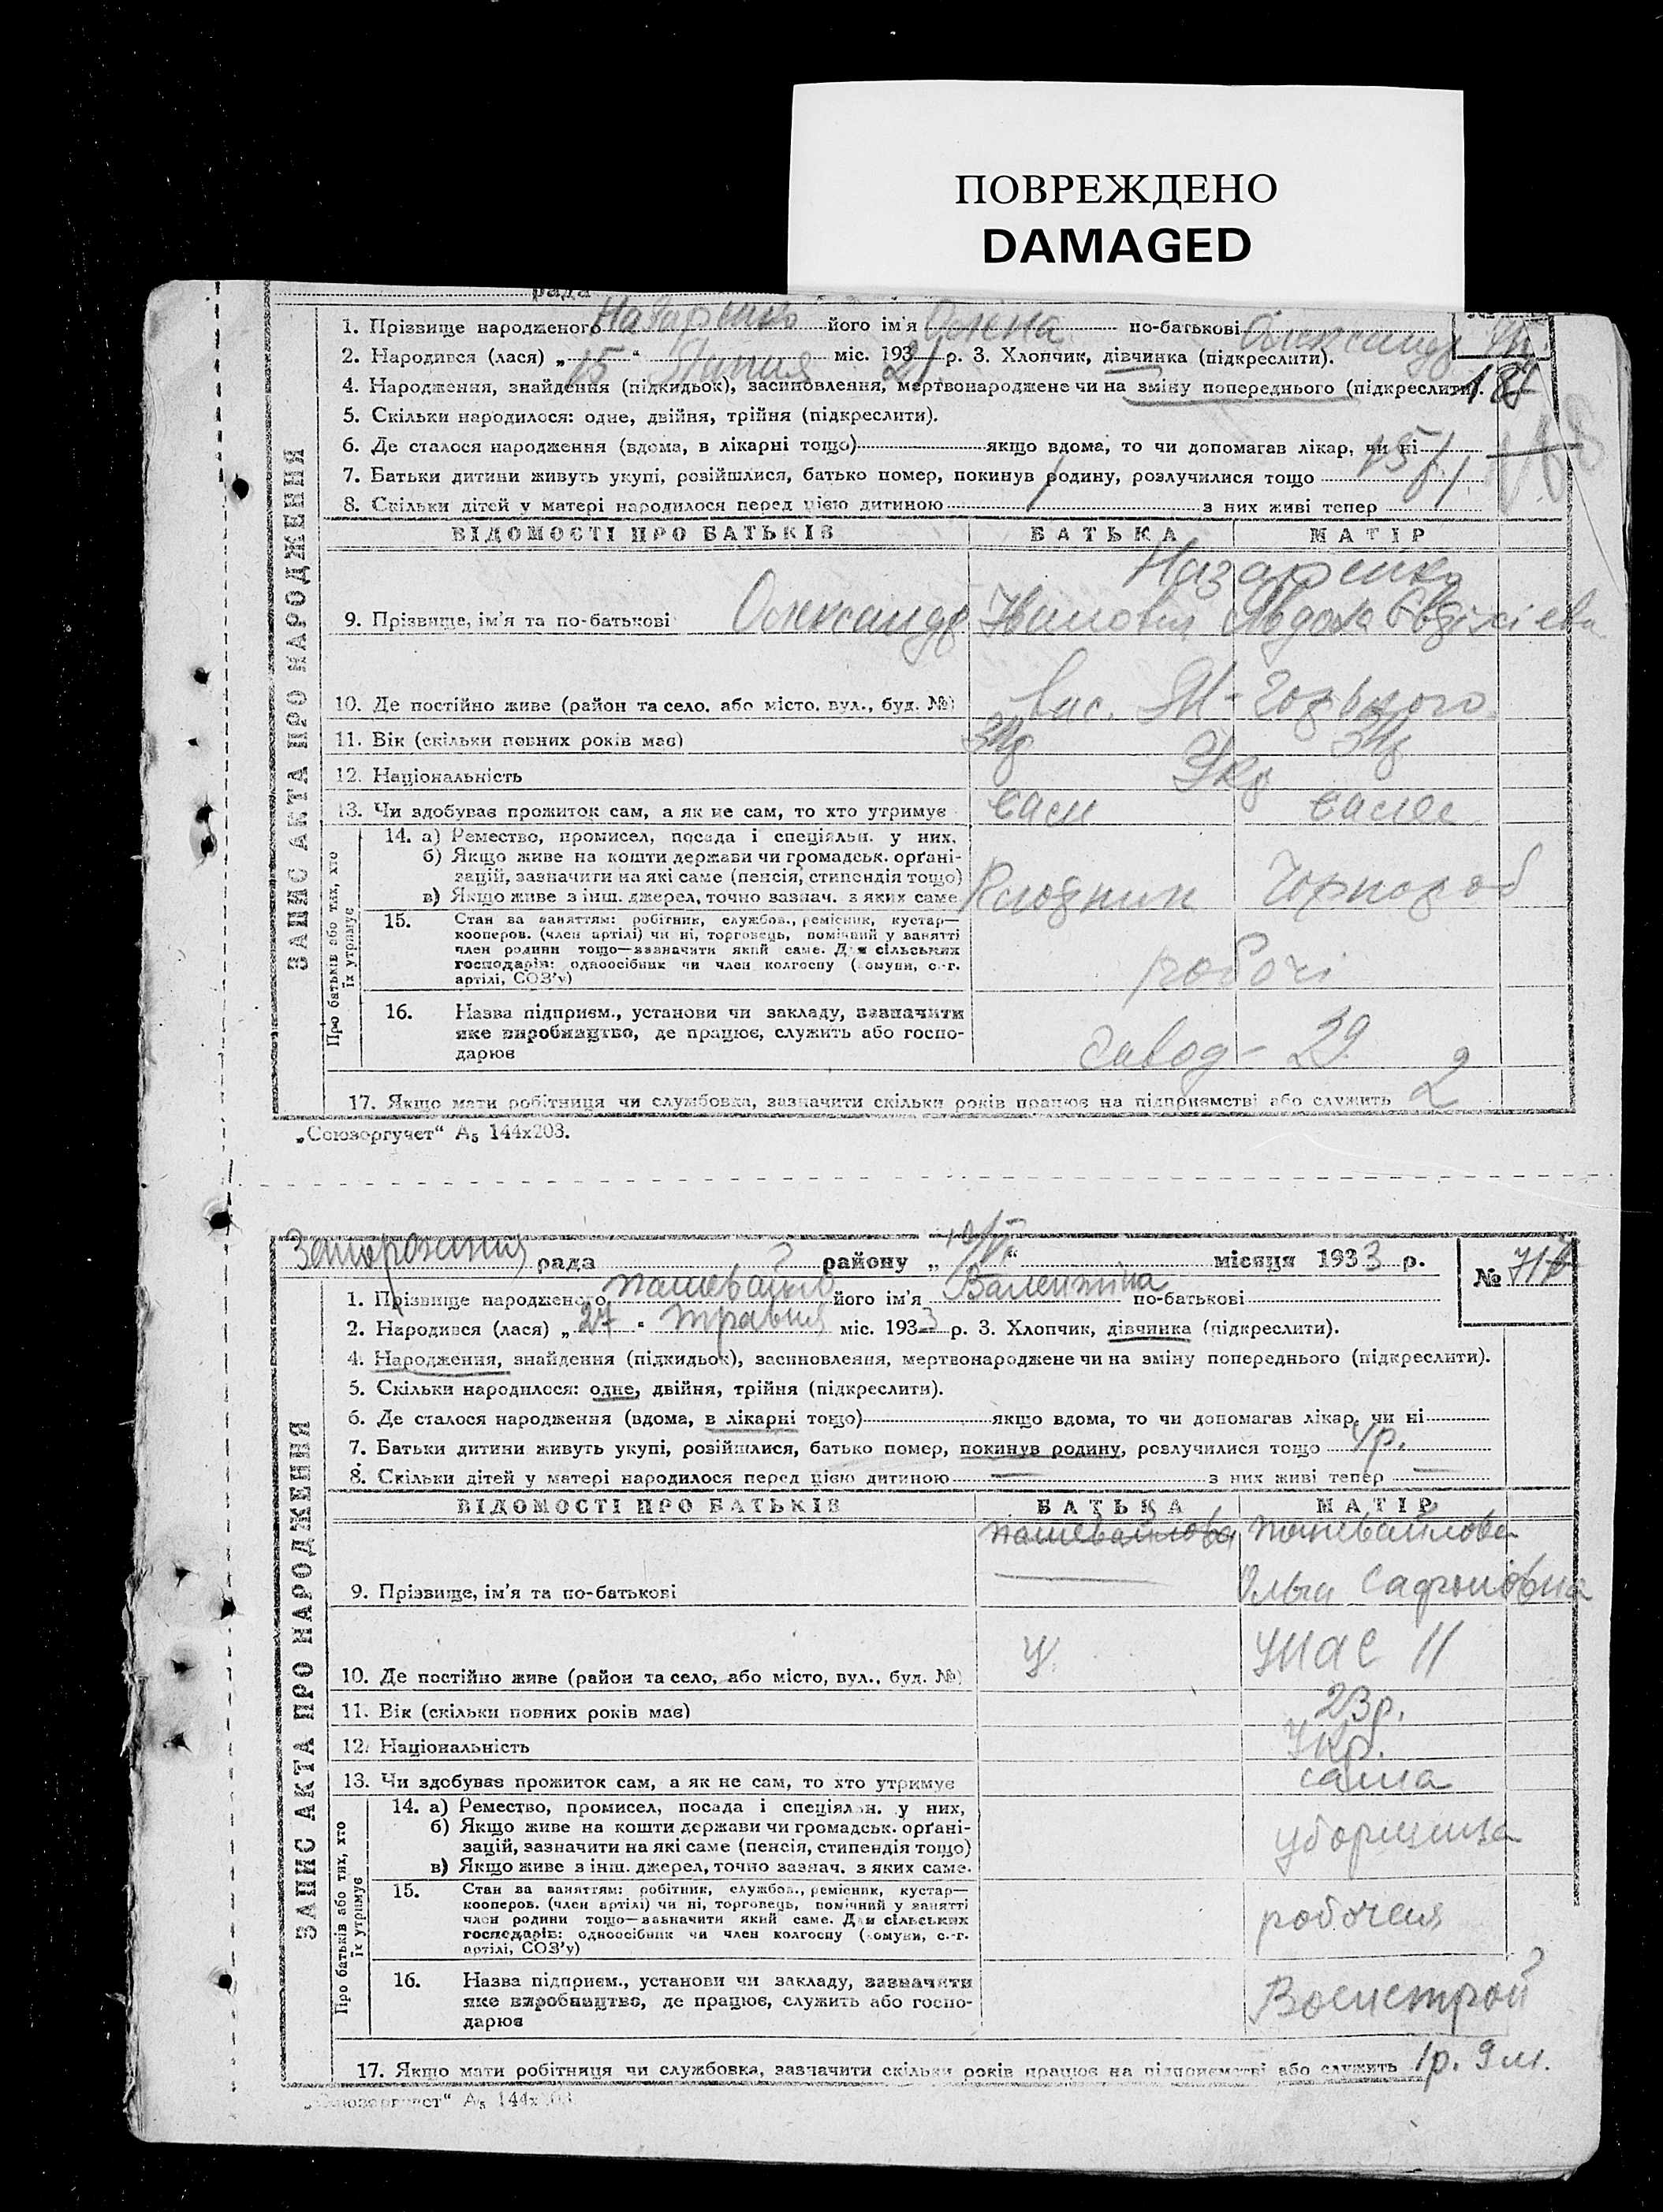 ПОВРЕЖДЕНО
DAMAGED
рада
1. Прізвище народженого Назаренко його ім'я Олена по-батькові Олександр
2. Народився (лася) „ 15 " Липня міс. 1921 р. 3. Хлопчик, дівчинка (підкреслити).
4. Народження, знайдення (підкидьок), засиновлення, мертвонароджене чи на зміну попереднього (підкреслити).
5. Скільки народилося: одне, двійня, трійня (підкреслити).
6. Де сталося народження (вдома, в лікарні тощо) якщо вдома, то чи допомагав лікар, чи ні
7. Батьки дитини живуть укупі, розійшлися, батько помер, покинув родину, розлучилися тощо
8. Скільки дітей у матері народилося перед цією дитиною з них живі тепер
ЗАПИС АКТА ПРО НАРОДЖЕННЯ
ВІДОМОСТІ ПРО БАТЬКІВ БАТЬКА МАТІР
Назаренко
9. Прізвище, ім'я та по-батькові Олександр Іванович
10. Де постійно живе (район та село, або місто, вул., буд. №)
11. Вік (скільки повних років має)
12. Національність Укр
13. Чи здобуває прожиток сам, а як не сам, то хто утримує сам
Про батьків або тих, хто їх утримує
14. а) Ремество, промисел, посада і спеціяльн. у них,
б) Якщо живе на кошти держави чи громадськ. орґані-
зацій, зазначити на які саме (пенсія, стипендія тощо)
в) Якщо живе з інш. джерел, точно зазнач. з яких саме Чорнороб
15. Стан за заняттям: робітник, службов., ремісник, кустар—
кооперов. (член артілі) чи ні, торговець, помічний у занятті
член родини тощо—зазначити який саме. Для сільських
господарів: одноосібник чи член колгоспу (комуни, с.-г.
артілі, СОЗ'у) робочі
16. Назва підприєм., установи чи закладу, зазначити
яке виробництво, де працює, служить або госпо-
дарює завод - 29
17. Якщо мати робітниця чи службовка, зазначити скільки років працює на підприємстві або служить 2
„Союзоргучет" А5 144х203.
рада району „ 10/VI " місяця 1933 р.
№ 717
1. Прізвище народженого його ім'я Валентина по-батькові
2. Народився (лася) „ 27 " травня міс. 1933 р. 3. Хлопчик, дівчинка (підкреслити).
4. Народження, знайдення (підкидьок), засиновлення, мертвонароджене чи на зміну попереднього (підкреслити).
5. Скільки народилося: одне, двійня, трійня (підкреслити).
6. Де сталося народження (вдома, в лікарні тощо) якщо вдома, то чи допомагав лікар, чи ні
7. Батьки дитини живуть укупі, розійшлися, батько помер, покинув родину, розлучилися тощо
8. Скільки дітей у матері народилося перед цією дитиною — з них живі тепер —
ЗАПИС АКТА ПРО НАРОДЖЕННЯ
ВІДОМОСТІ ПРО БАТЬКІВ БАТЬКА МАТІР
9. Прізвище, ім'я та по-батькові Ольга
10. Де постійно живе (район та село, або місто, вул., буд. №)
11. Вік (скільки повних років має) 23р.
12. Національність Укр.
13. Чи здобуває прожиток сам, а як не сам, то хто утримує сама
Про батьків або тих, хто їх утримує
14. а) Ремество, промисел, посада і спеціяльн. у них,
б) Якщо живе на кошти держави чи громадськ. орґані-
зацій, зазначити на які саме (пенсія, стипендія тощо)
в) Якщо живе з інш. джерел, точно зазнач. з яких саме. уборщица
15. Стан за заняттям: робітник, службов., ремісник, кустар—
кооперов. (член артілі) чи ні, торговець, помічний у занятті
член родини тощо—зазначити який саме. Для сільських
господарів: одноосібник чи член колгоспу (комуни, с.-г.
артілі, СОЗ'у)
16. Назва підприєм., установи чи закладу, зазначити
яке виробництво, де працює, служить або госпо-
дарює Военстрой
17. Якщо мати робітниця чи службовка, зазначити скільки років працює на підприємстві або служить 1р. 9 м.
„Союзоргучет" А5 144х203